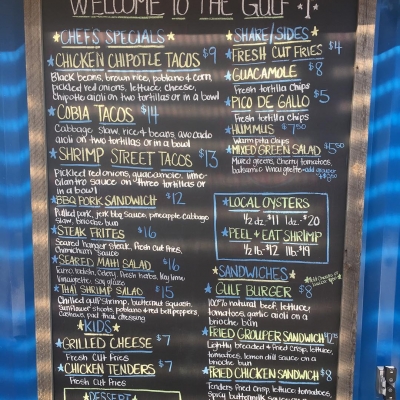 WELCOME TO THE GULF
CHEFS SPECIALS
CHICKEN CHIPOTLE TACOS $9
Black beans, brown rice, poblano & corn,
pickled red onions, lettuce, cheese,
Chipotle aioli on two tortillas or in a bowl
COBIA TACOS $14
Cabbage slaw, rice & beans, avocado
aioli on two tortillas or in a bowl
SHRIMP STREET TACOS $13
Pickled red onions, guacamole, lime-
cilantro sauce on three tortillas or
in a bowl
BBQ PORK SANDWICH $12
Pulled pork, jerk bbq sauce, pineapple cabbage
slaw, brioche bun
STEAK FRITES $16
Seared hanger steak, fresh cut fries,
Chimichurri sauce
SEARED MAHI SALAD $16
celery, fresh herbs, key lime
vinaigrette, soy glaze
THAI SHRIMP SALAD $15
Chilled gulf shrimp, butternut squash,
Sunflower shoots, poblano & red bell peppers,
Cashews, pad thai dressing
KIDS
GRILLED CHEESE $7
Fresh Cut Fries
CHICKEN TENDERS $7
Fresh Cut Fries
DESSERT
SHARE/SIDES
FRESH CUT FRIES $4
GUACAMOLE $8
Fresh tortilla Chips
PICO DE GALLO $5
Fresh tortilla Chips
HUMMUS $7.50
Warm pita Chips
MIXED GREEN SALAD $5.50
Mixed greens, Cherry tomatoes,
balsamic vinaigrette -add grouper
LOCAL OYSTERS
1/2 dz. $11 1dz. $20
PEEL & EAT SHRIMP
1/2 lb. $12 1lb. $19
SANDWICHES
GULF BURGER $8
100% natural beef, lettuce,
tomatoes, garlic aioli on a
brioche bun
FRIED GROUPER SANDWICH
Lightly breaded & fried crisp, lettuce,
tomatoes, lemon dill sauce on a
brioche bun
FRIED CHICKEN SANDWICH $8
Tenders fried crisp, lettuce, tomatoes,
spicy buttermilk sauce